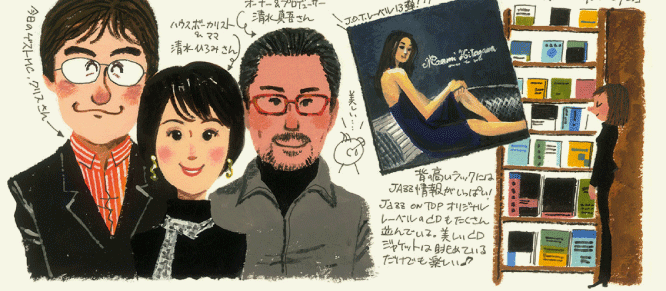 今日のゲストMC、クリスさん
ハウスボーカリスト
&ママ
清水ひろみさん
オーナー&プロデューサー
清水真吾さん
J.O.T.レーベル13弾!!
美しい…
背の高いラックには
JAZZ情報がいっぱい!
JAZZ ON TOP オリジナル
レーベルのCDもたくさん
並んでいる。美しいCD
ジャケットは眺めている
だけでも楽しい♪